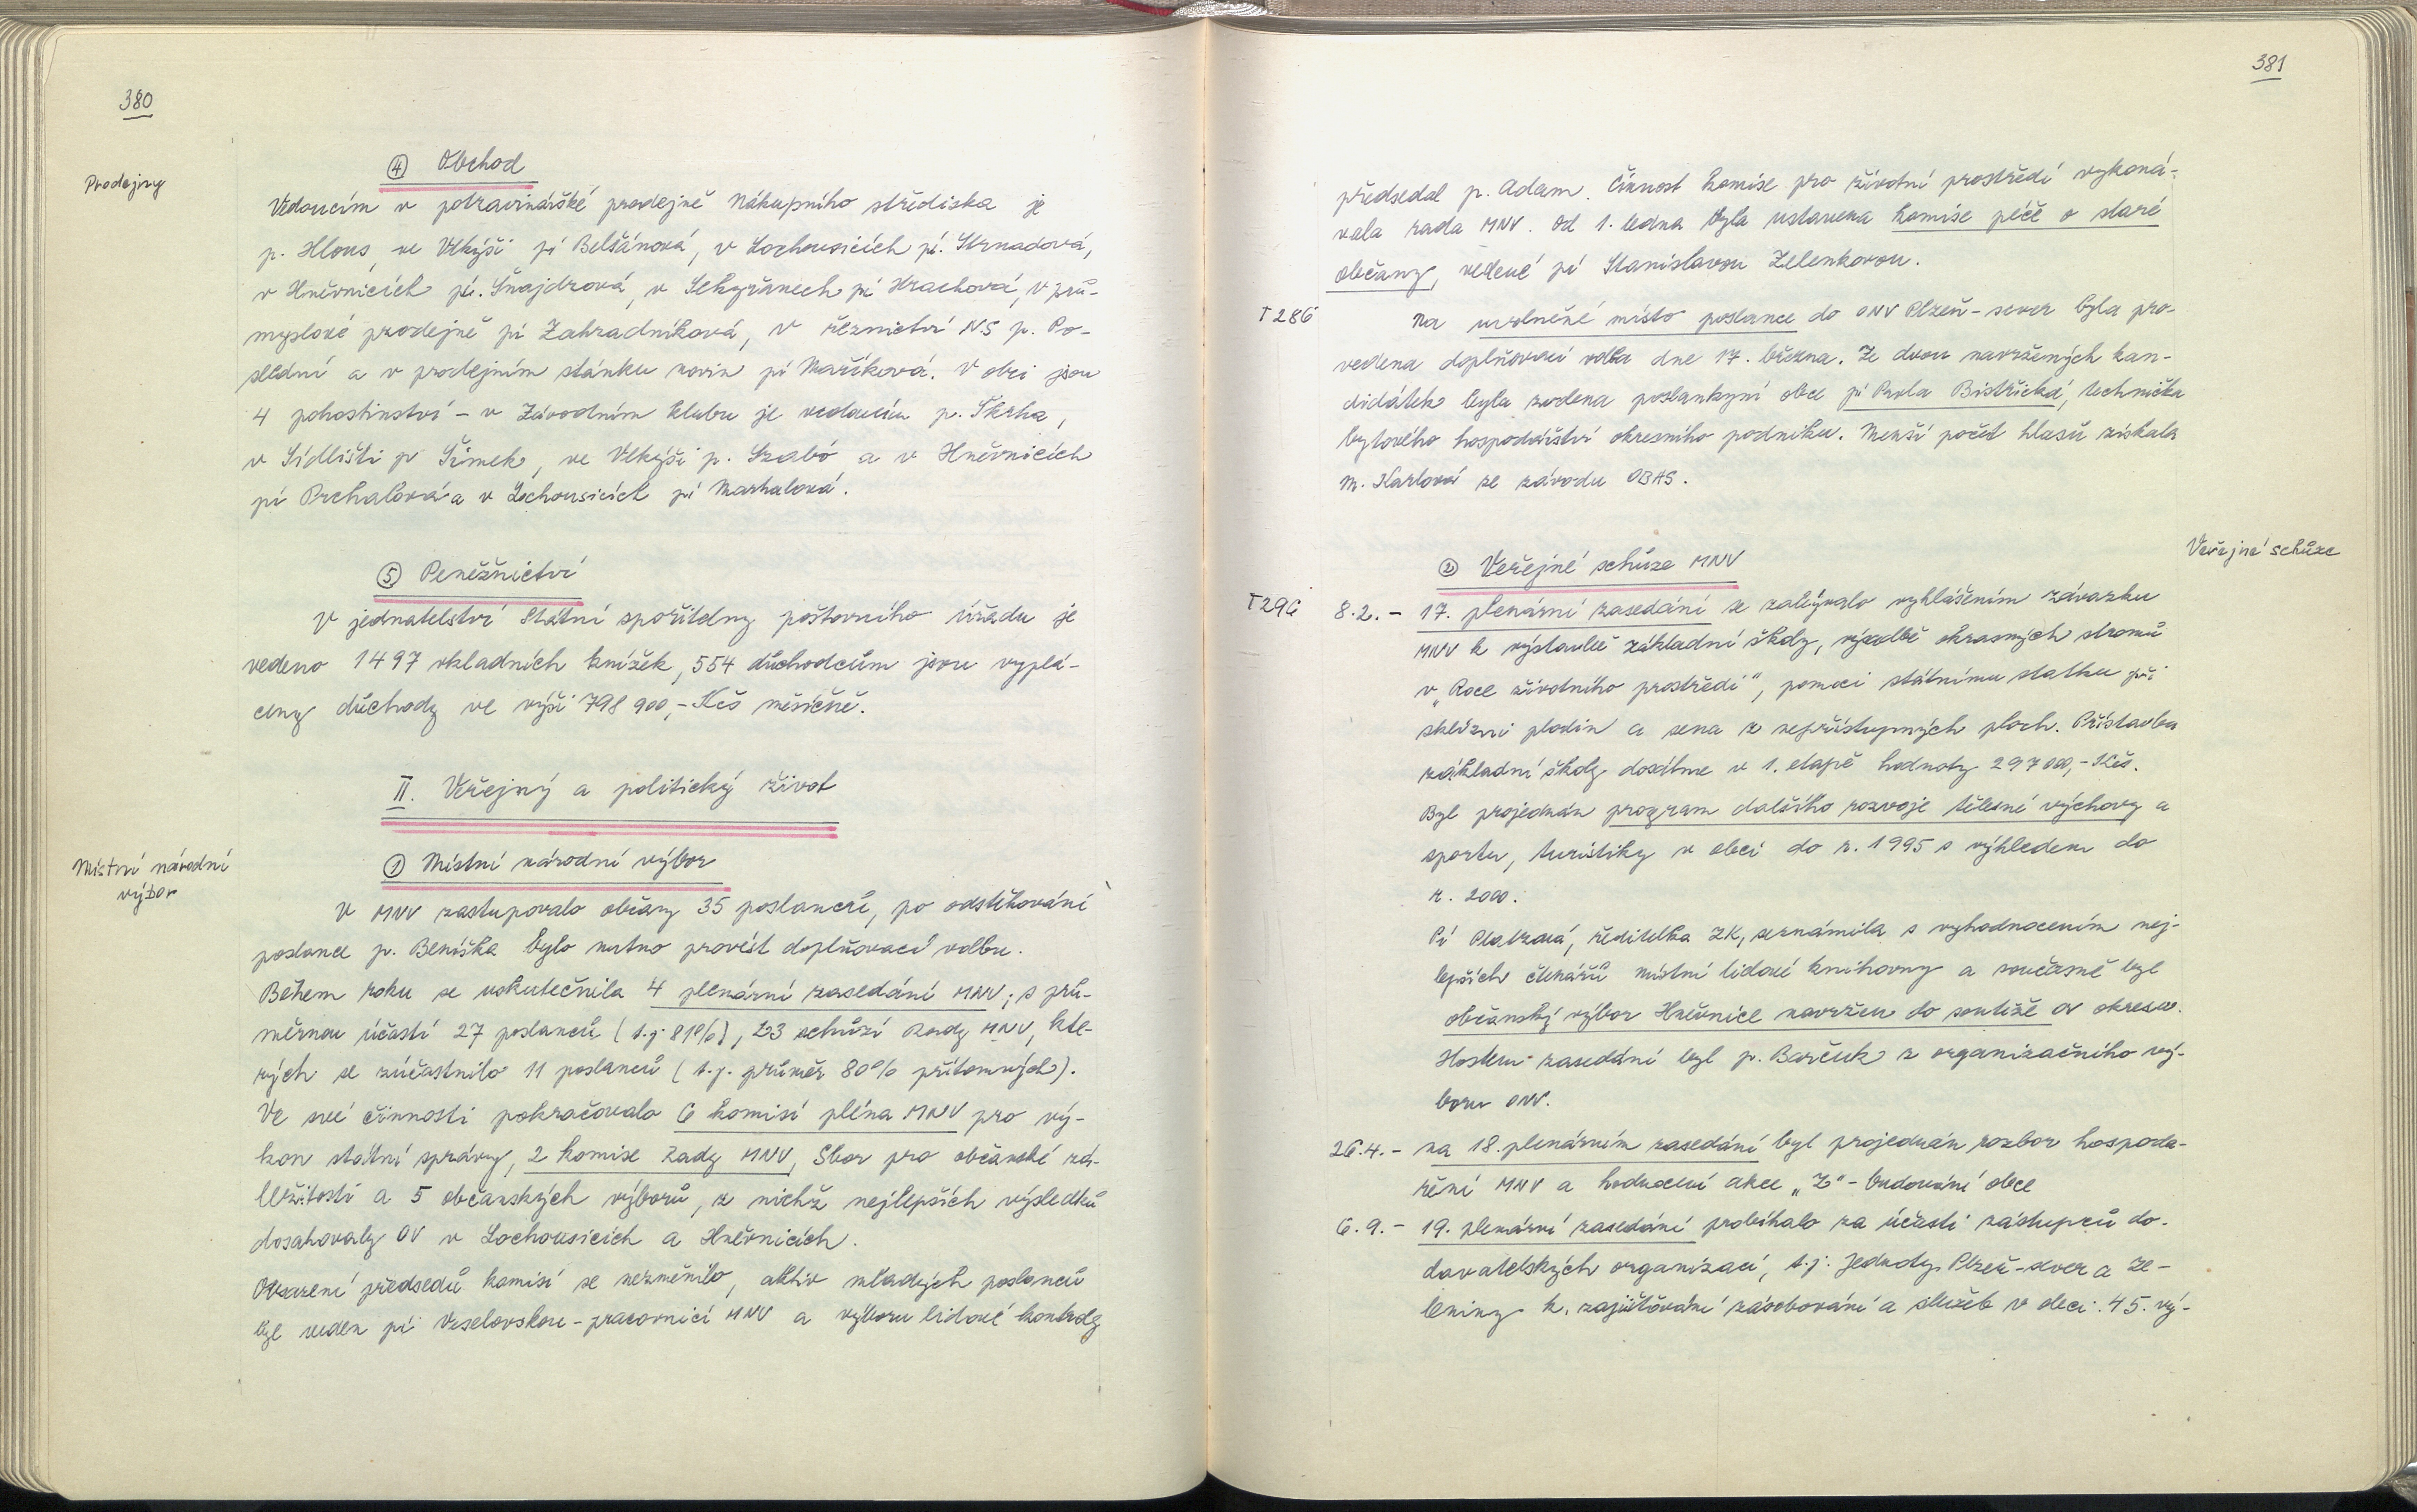 380
Prodejny
④ Obchod
Vedoucím v potravinářské prodejně Nákupního střediska je
p. Hlous, ve Vlkýši pí Belšánová, v Lochousicích pí. Strnadová,
v Hněvnicích pí. Šnajdrová, v Sekyřanech pí Hrachová, v prů-
myslové prodejně pí Zahradníková, v řeznictví NS p. Po-
slední a v prodejním stánku novin pí Maříková. V obci jsou
4 pohostinství - v Závodním klubu je vedoucím p. Škrha,
v Sídlišti p Šimek, ve Vlkýši p. Szabó a v Hněvnicích
pí Prchalová a v Lochousicích pí Marhalová.
⑤ Peněžnictví
V jednatelství Státní spořitelny poštovního úřadu je
vedeno 1497 vkladních knížek, 554 důchodcům jsou vyplá-
ceny důchody ve výši 798 900,- Kčs měsíčně.
II. Veřejný a politický život
Místní národní
výbor
① Místní národní výbor
V MNV zastupovalo občany 35 poslanců, po odstěhování
poslance p. Beníška bylo nutno provést doplňovací volbu.
Během roku se uskutečnila 4 plenární zasedání MNV; s prů-
měrnou účastí 27 poslanců (t.j. 81%), 23 schůzí Rady MNV, kte-
rých se zúčastnilo 11 poslanců (t.j. průměr 80% přítomných).
Ve své činnosti pokračovalo 6 komisí pléna MNV pro vý-
kon státní správy, 2 komise Rady MNV, Sbor pro občanské zá-
ležitosti a 5 občanských výborů, z nichž nejlepších výsledků
dosahovaly OV v Lochousicích a Hněvnicích.
Obsazení předsedů komisí se nezměnilo, aktiv mladých poslanců
byl veden pí Veselovskou - pracovnicí MNV a výboru lidové kontroly
381
předsedal p. Adam. Činnost komise pro životní prostředí vykoná-
vala rada MNV. Od 1. ledna byla ustavena komise péče o staré
občany, vedené pí Stanislavou Zelenkovou.
T286
Na uvolněné místo poslance do ONV Plzeň-sever byla pro-
vedena doplňovací volba dne 17. března. Ze dvou navržených kan-
didátek byla zvolena poslankyní obce pí Pavla Bistřická, technička
bytového hospodářství okresního podniku. Menší počet hlasů získala
M. Karlová ze závodu OBAS.
Veřejné schůze
② Veřejné schůze MNV
T296
8.2. - 17. plenární zasedání se zabývalo vyhlášením závazku
MNV k výstavbě základní školy, výsadbě okrasných stromů
v „Roce životního prostředí", pomoci státnímu statku při
sklizni plodin a sena z nepřístupných ploch. Přístavba
základní školy dosáhne v 1. etapě hodnoty 297000,- Kčs.
Byl projednán program dalšího rozvoje tělesné výchovy a
sportu, turistiky v obci do r. 1995 s výhledem do
r. 2000.
Pí ředitelka ZK, seznámila s vyhodnocením nej-
lepších čtenářů místní lidové knihovny a současně byl
občanský výbor Hněvnice navržen do soutěže OV okresu.
Hostem zasedání byl p. Barčuk z organizačního vý-
boru ONV.
26.4. - na 18. plenárním zasedání byl projednán rozbor hospoda-
ření MNV a hodnocení akce „Z" - budování obce
6.9. - 19. plenární zasedání probíhalo za účasti zástupců do-
davatelských organizací, t.j. Jednoty Plzeň-sever a Ze-
leniny k zajišťování zásobování a služeb v obci. 45. vý-